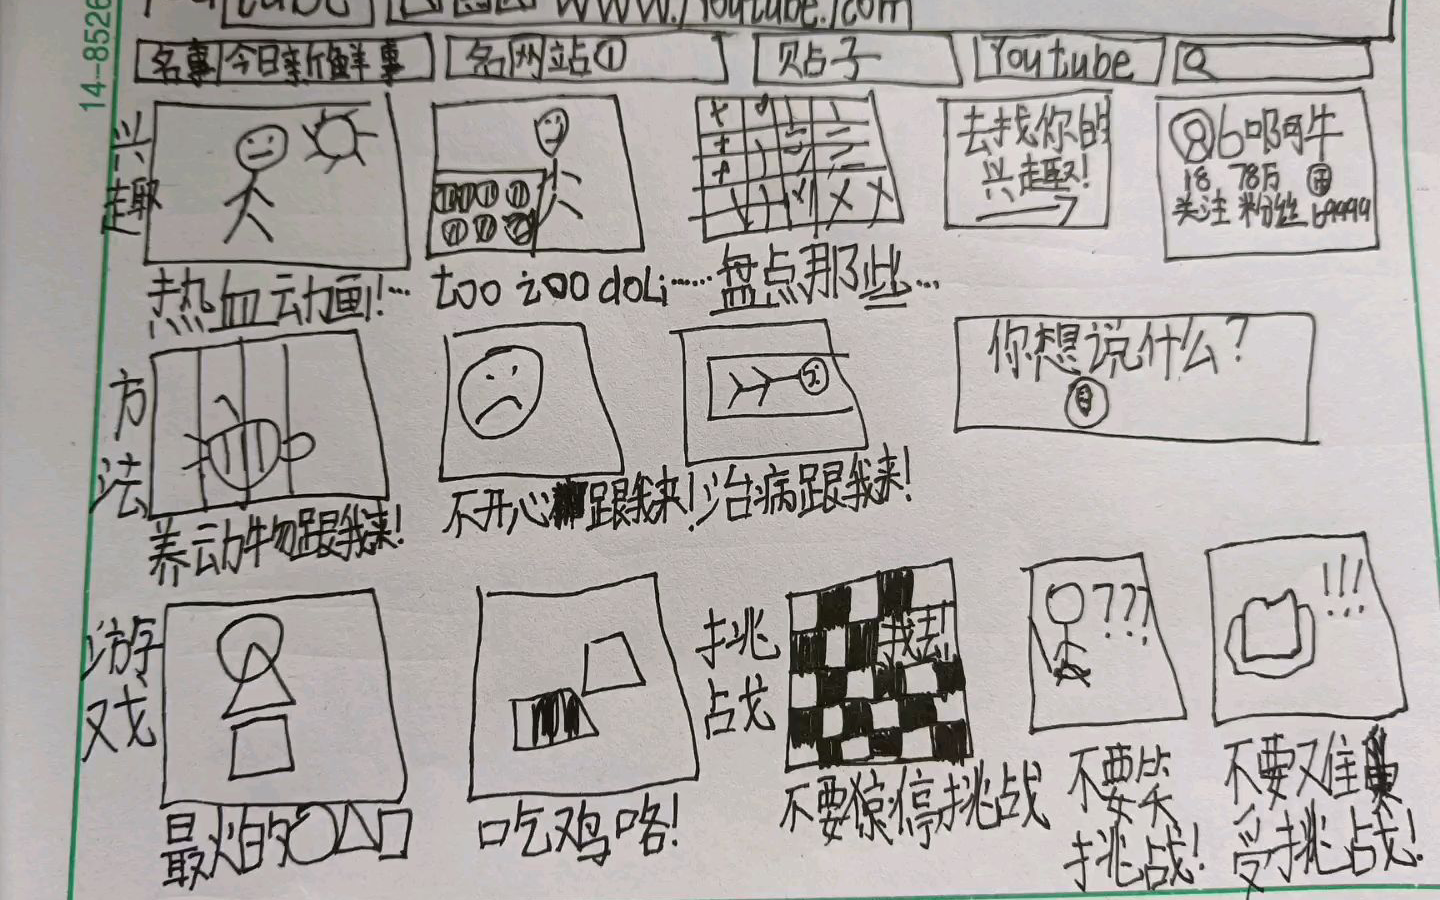 14-8526
www./Youtube./com
名事 今日新鲜事 名网站① 贴子 Youtube
兴趣
去找你的
兴趣!
6呵牛
18 78万
关注 粉丝
热血动画!… too zoo doli…… 盘点那些…
方法
你想说什么?
养动物跟我来! 不开心跟我来! 治病跟我来!
游戏
挑战
我去!
???
!!!
最火的○△□ 吃鸡咯! 不要惊停挑战 不要笑挑战! 不要难受挑战!